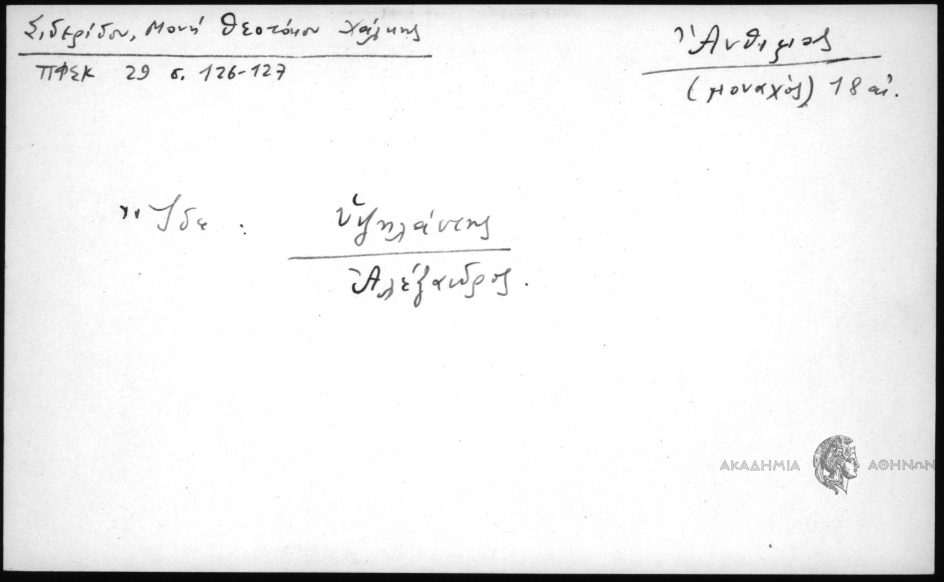 Σιδερίδου, Μονή Θεοτόκου Χάλκης
ΠΦΣΚ 29 σ. 126-127
Ἄνθιμος
(μοναχός) 18 αἰ.
Ἴδε : Ὑψηλάντης
Ἀλέξανδρος.
ΑΚΑΔΗΜΙΑ ΑΘΗΝΩΝ